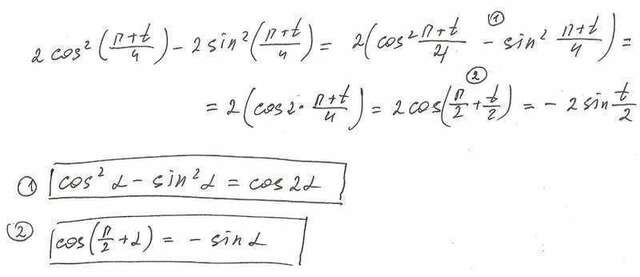 2 cos² (π+t/4) − 2 sin² (π+t/4) = 2(cos² π+t/4 ① − sin² π+t/4) =
= 2(cos 2 · π+t/4) = 2 cos(π/2 + t/2) ② = − 2 sin t/2
① cos² α − sin² α = cos 2α
② cos(π/2 + α) = − sin α